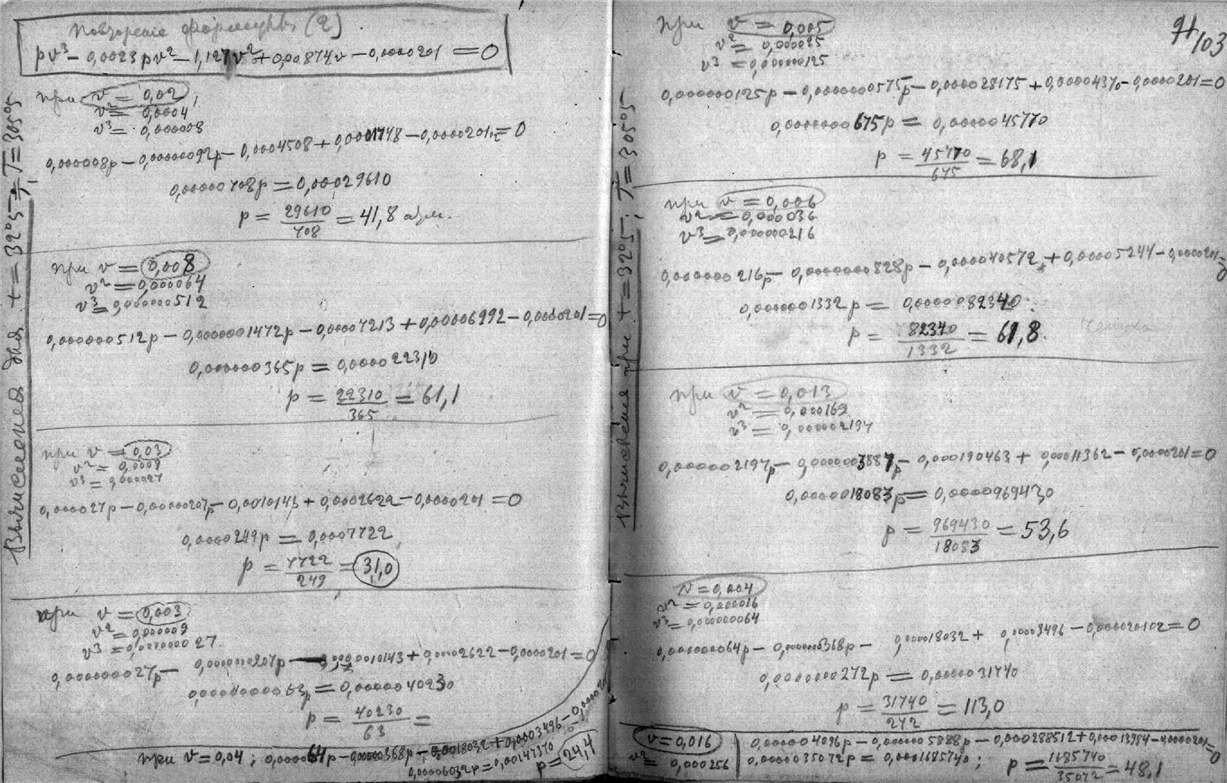 Повторение формулы (2)
pv³ − 0,0023pv² − 1,127v² + 0,00874v − 0,0000201 = 0
при v = 0,02
v² = 0,0004
v³ = 0,000008
0,000008p − 0,00000092p − 0,0004508 + 0,0001748 − 0,0000201 = 0
0,00000708p = 0,00029610
p = 29610/708 = 41,8 атм.
при v = 0,008
v² = 0,000064
v³ = 0,000000512
0,000000512p − 0,0000001472p − 0,00007213 + 0,00006992 − 0,0000201 = 0
0,000000365p = 0,000022310
p = 22310/365 = 61,1
при v = 0,03
v² = 0,0009
v³ = 0,000027
0,000027p − 0,00000207p − 0,0010143 + 0,0002622 − 0,0000201 = 0
0,0000249p = 0,0007722
p = 7722/249 = 31,0
при v = 0,003
v² = 0,000009
v³ = 0,000000027
0,000000027p − 0,0000000207p − 0,000010143 + 0,00002622 − 0,0000201 = 0
0,0000000063p = 0,0000040230
p = 40230/63 =
при v = 0,04 ; 0,000064p − 0,00000368p − 0,0018032 + 0,0003496 −
p = 24,4
t = 32°5 ; T = 305°5
71/103
при v = 0,005
v² = 0,000025
v³ = 0,000000125
0,000000125p − 0,0000000575p − 0,000028175 + 0,0000437 − 0,0000201 = 0
0,0000000675p = 0,0000045770
p = 45770/675 = 68,1
при v = 0,006
v² = 0,000036
v³ = 0,000000216
0,000000216p − 0,0000000828p − 0,000040572 + 0,00005244 − 0,0000201 = 0
0,0000001332p = 0,0000082340
p = 82340/1332 = 61,8
при v = 0,013
v² = 0,000169
v³ = 0,000002197
0,000002197p − 0,0000003887p − 0,000190463 + 0,00011362 − 0,0000201 = 0
0,0000018083p = 0,0000969430
p = 969430/18083 = 53,6
v = 0,004
v² = 0,000016
v³ = 0,000000064
0,000000064p − 0,0000000368p − 0,000018032 + 0,00003496 − 0,0000201 = 0
0,0000000272p = 0,0000031740
p = 31740/272 = 113,0
v = 0,016
v² = 0,000256
0,000004096p − 0,0000005888p − 0,000288512 + 0,00013984 − 0,0000201 = 0
0,0000035072p = 0,0001685740 ; p = 1685740/35072 = 48,1
при t = 32°5 ; T = 305°5